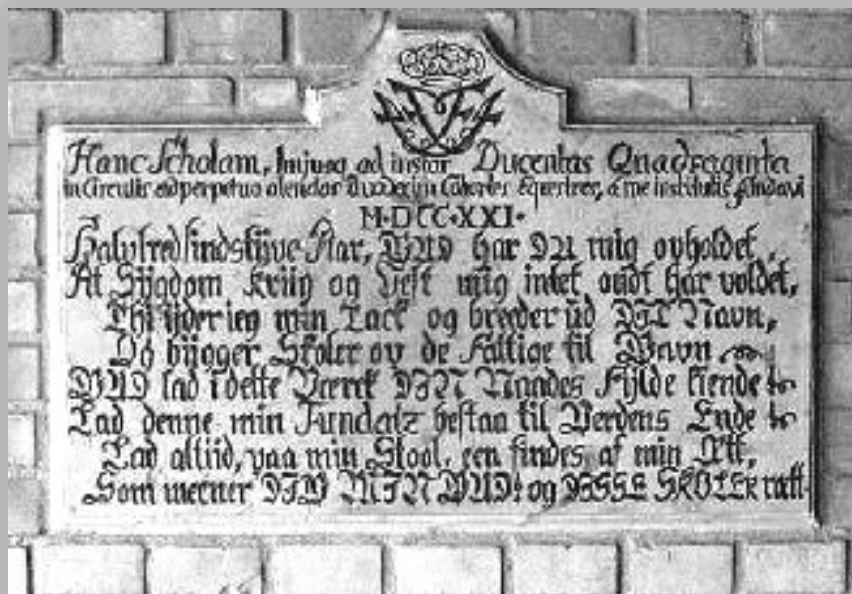 Hanc Scholam, hujusq ad instar Ducentas Quadraginta
in Circulis ad perpetuo alendas Duodecim Cohortes Equestres, a me institutis fundavi
M·DCC·XXI·
Halvfredsindstyve Aar, GUD har DU mig opholdet,
At Sygdom Kriig og Pest mig intet ondt har voldet,
Thi yder ieg min Tack og breeder ud DIT Navn,
Og bygger Skoler op de Fattige til Gavn
GUD lad i dette Værck DIN Naades Fylde kiende
Lad denne min Fundatz bestaa til Verdens Ende
Lad altiid, paa min Stool, een findes af min Ætt,
Som meener DIG MIN GUD! og DISSE SKOLER rætt.